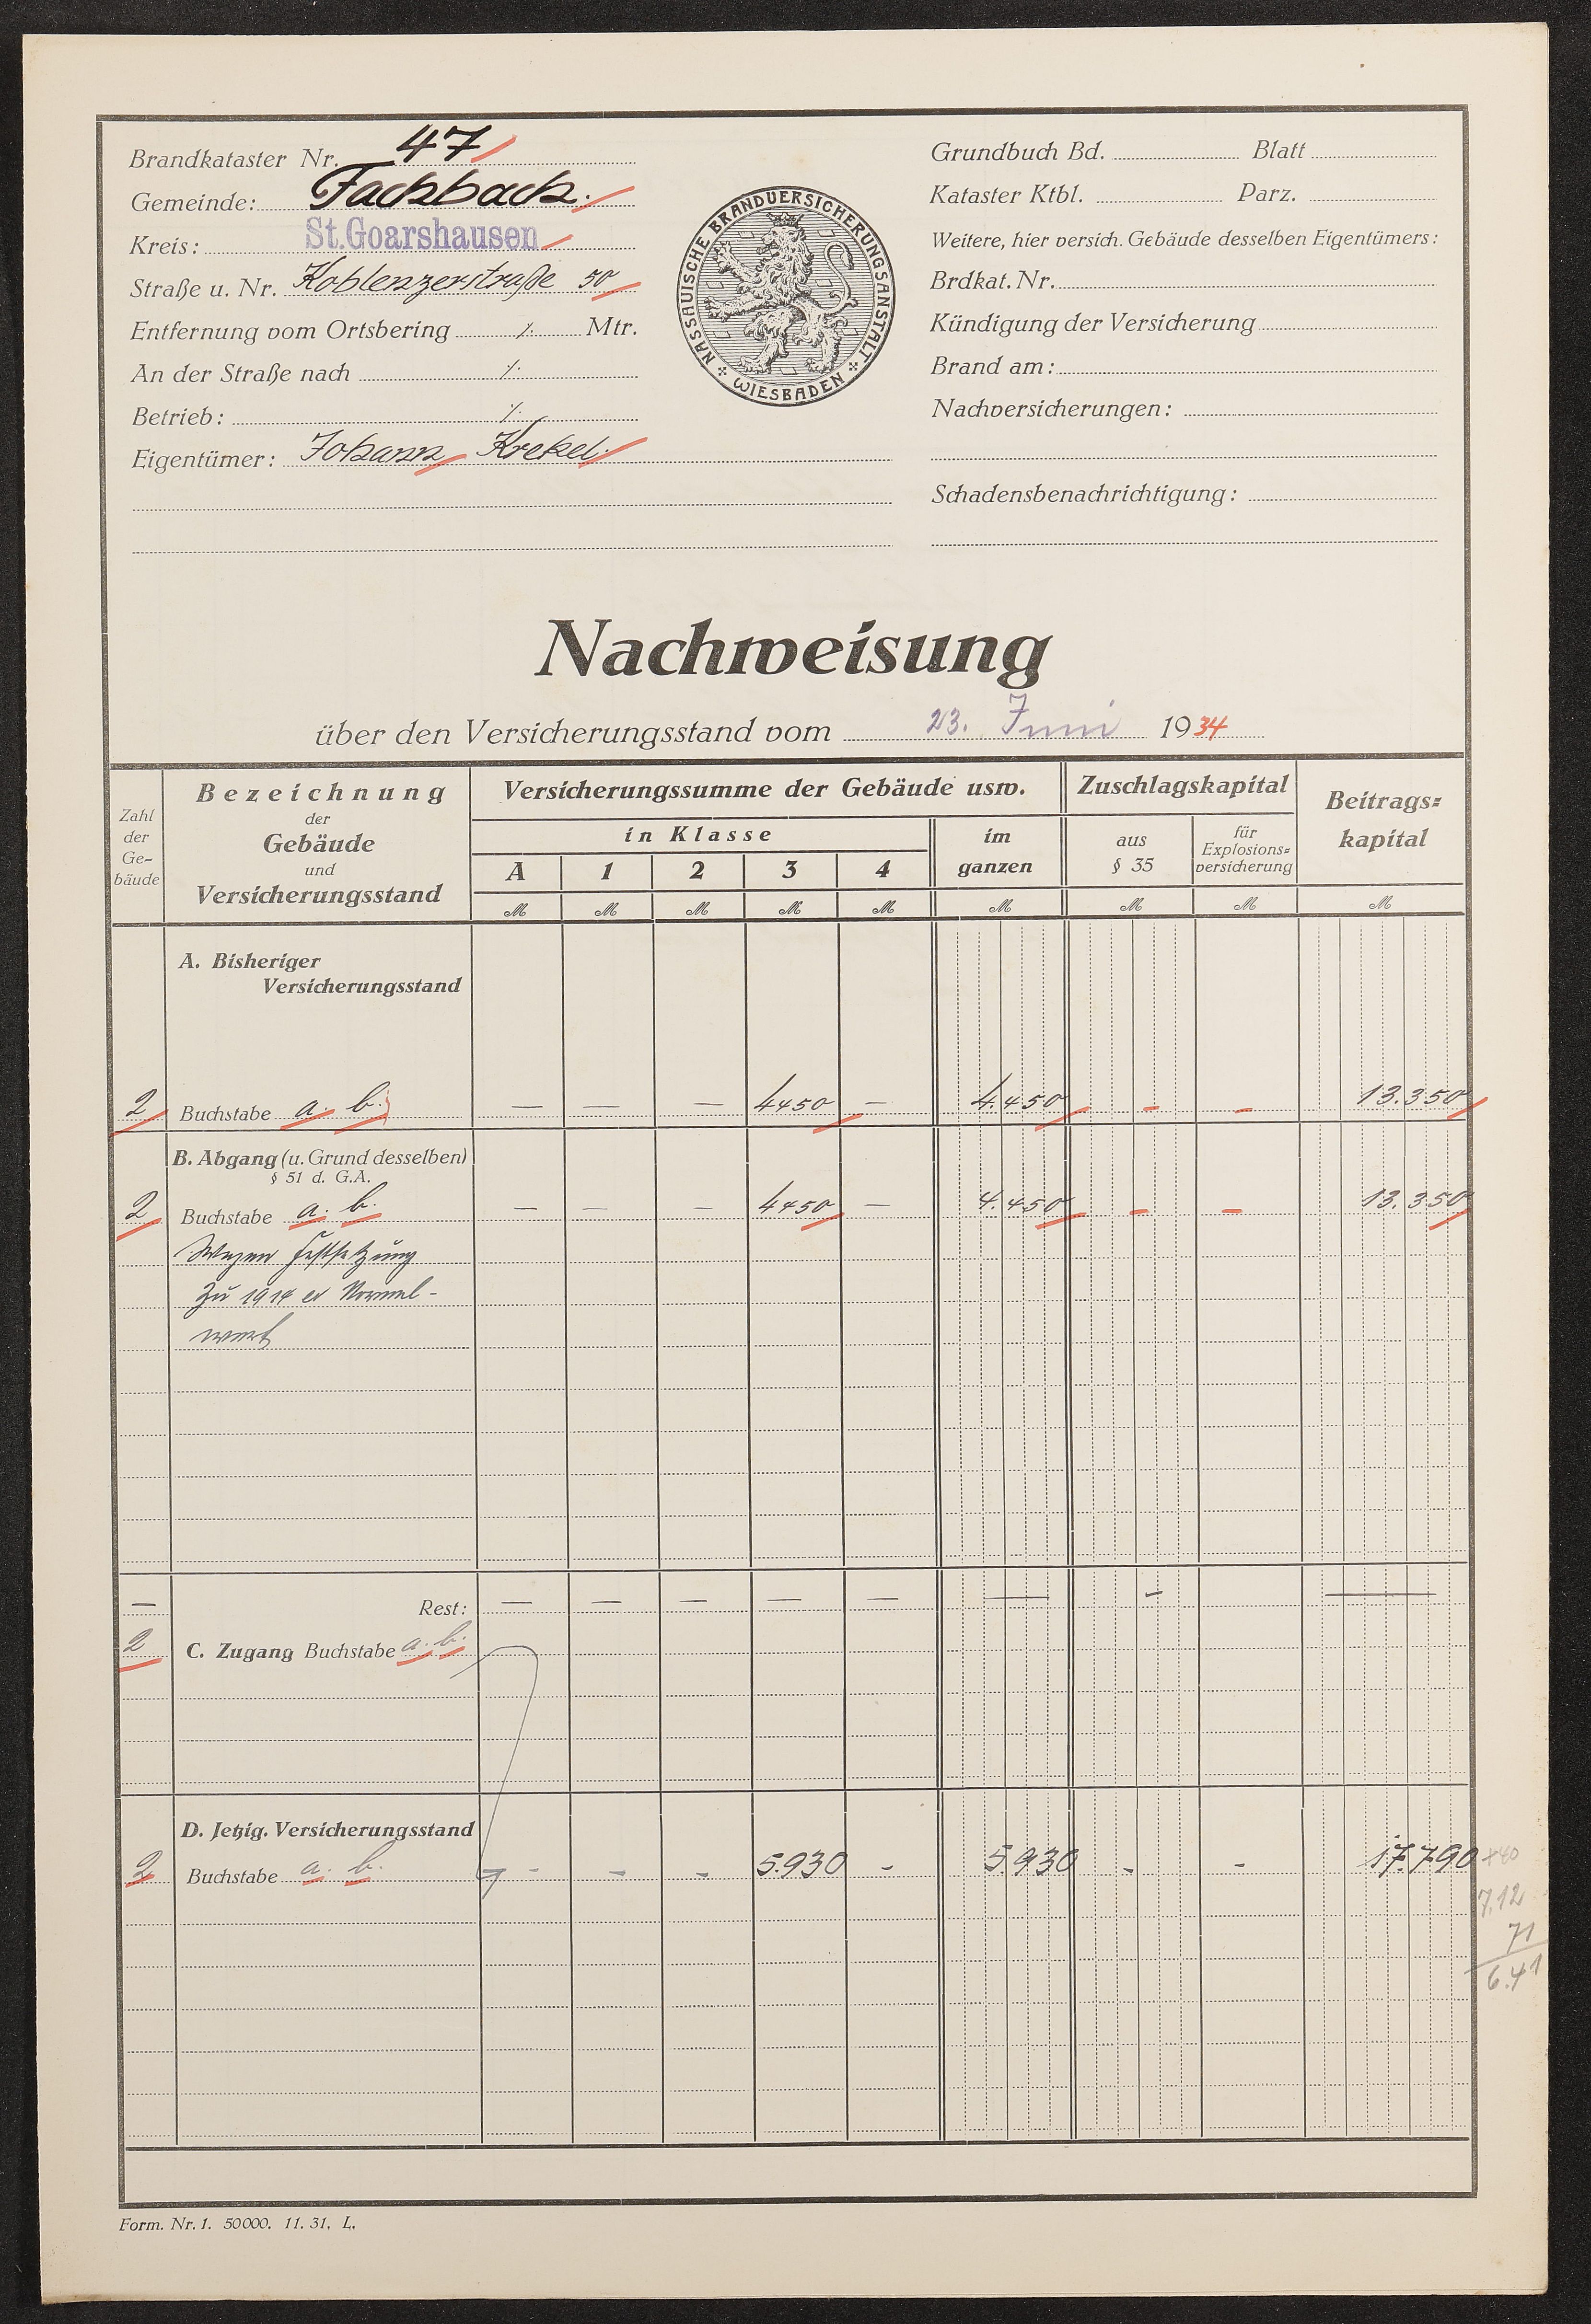 Brandkataster Nr. 47
Gemeinde: Fachbach.
Kreis: St. Goarshausen
Straße u. Nr. Koblenzerstraße 50
Entfernung vom Ortsbering ./. Mtr.
An der Straße nach ./.
Betrieb: ./.
Eigentümer: Johann Krekel.
NASSAUISCHE BRANDVERSICHERUNGSANSTALT
WIESBADEN
Grundbuch Bd. Blatt
Kataster Ktbl. Parz.
Weitere, hier versich. Gebäude desselben Eigentümers:
Brdkat. Nr.
Kündigung der Versicherung
Brand am:
Nachversicherungen:
Schadensbenachrichtigung:
Nachweisung
über den Versicherungsstand vom 23. Juni 1934
Zahl der Ge-bäude
Bezeichnung
der
Gebäude
und
Versicherungsstand
Versicherungssumme der Gebäude usw.
in Klasse
A 1 2 3 4
im
ganzen
Zuschlagskapital
aus
§ 35
für
Explosions=
versicherung
Beitrags=
kapital
M M M M M M M M M
A. Bisheriger
Versicherungsstand
2 Buchstabe a. b. — — — 4450 — 4.450 - - 13.350
B. Abgang (u. Grund desselben)
§ 51 d. G.A.
2 Buchstabe a. b. — — — 4450 — 4.450 - - 13.350
Wegen Festsetzung
zu 1914 er Normal-
wert
— Rest: — — — — — — - —
2 C. Zugang Buchstabe a. b.
D. Jetzig. Versicherungsstand
2 Buchstabe a. b. - - - 5.930 - 5.930 - - 17.790
7,12
71
6.41
Form. Nr. 1. 50000. 11. 31. L.